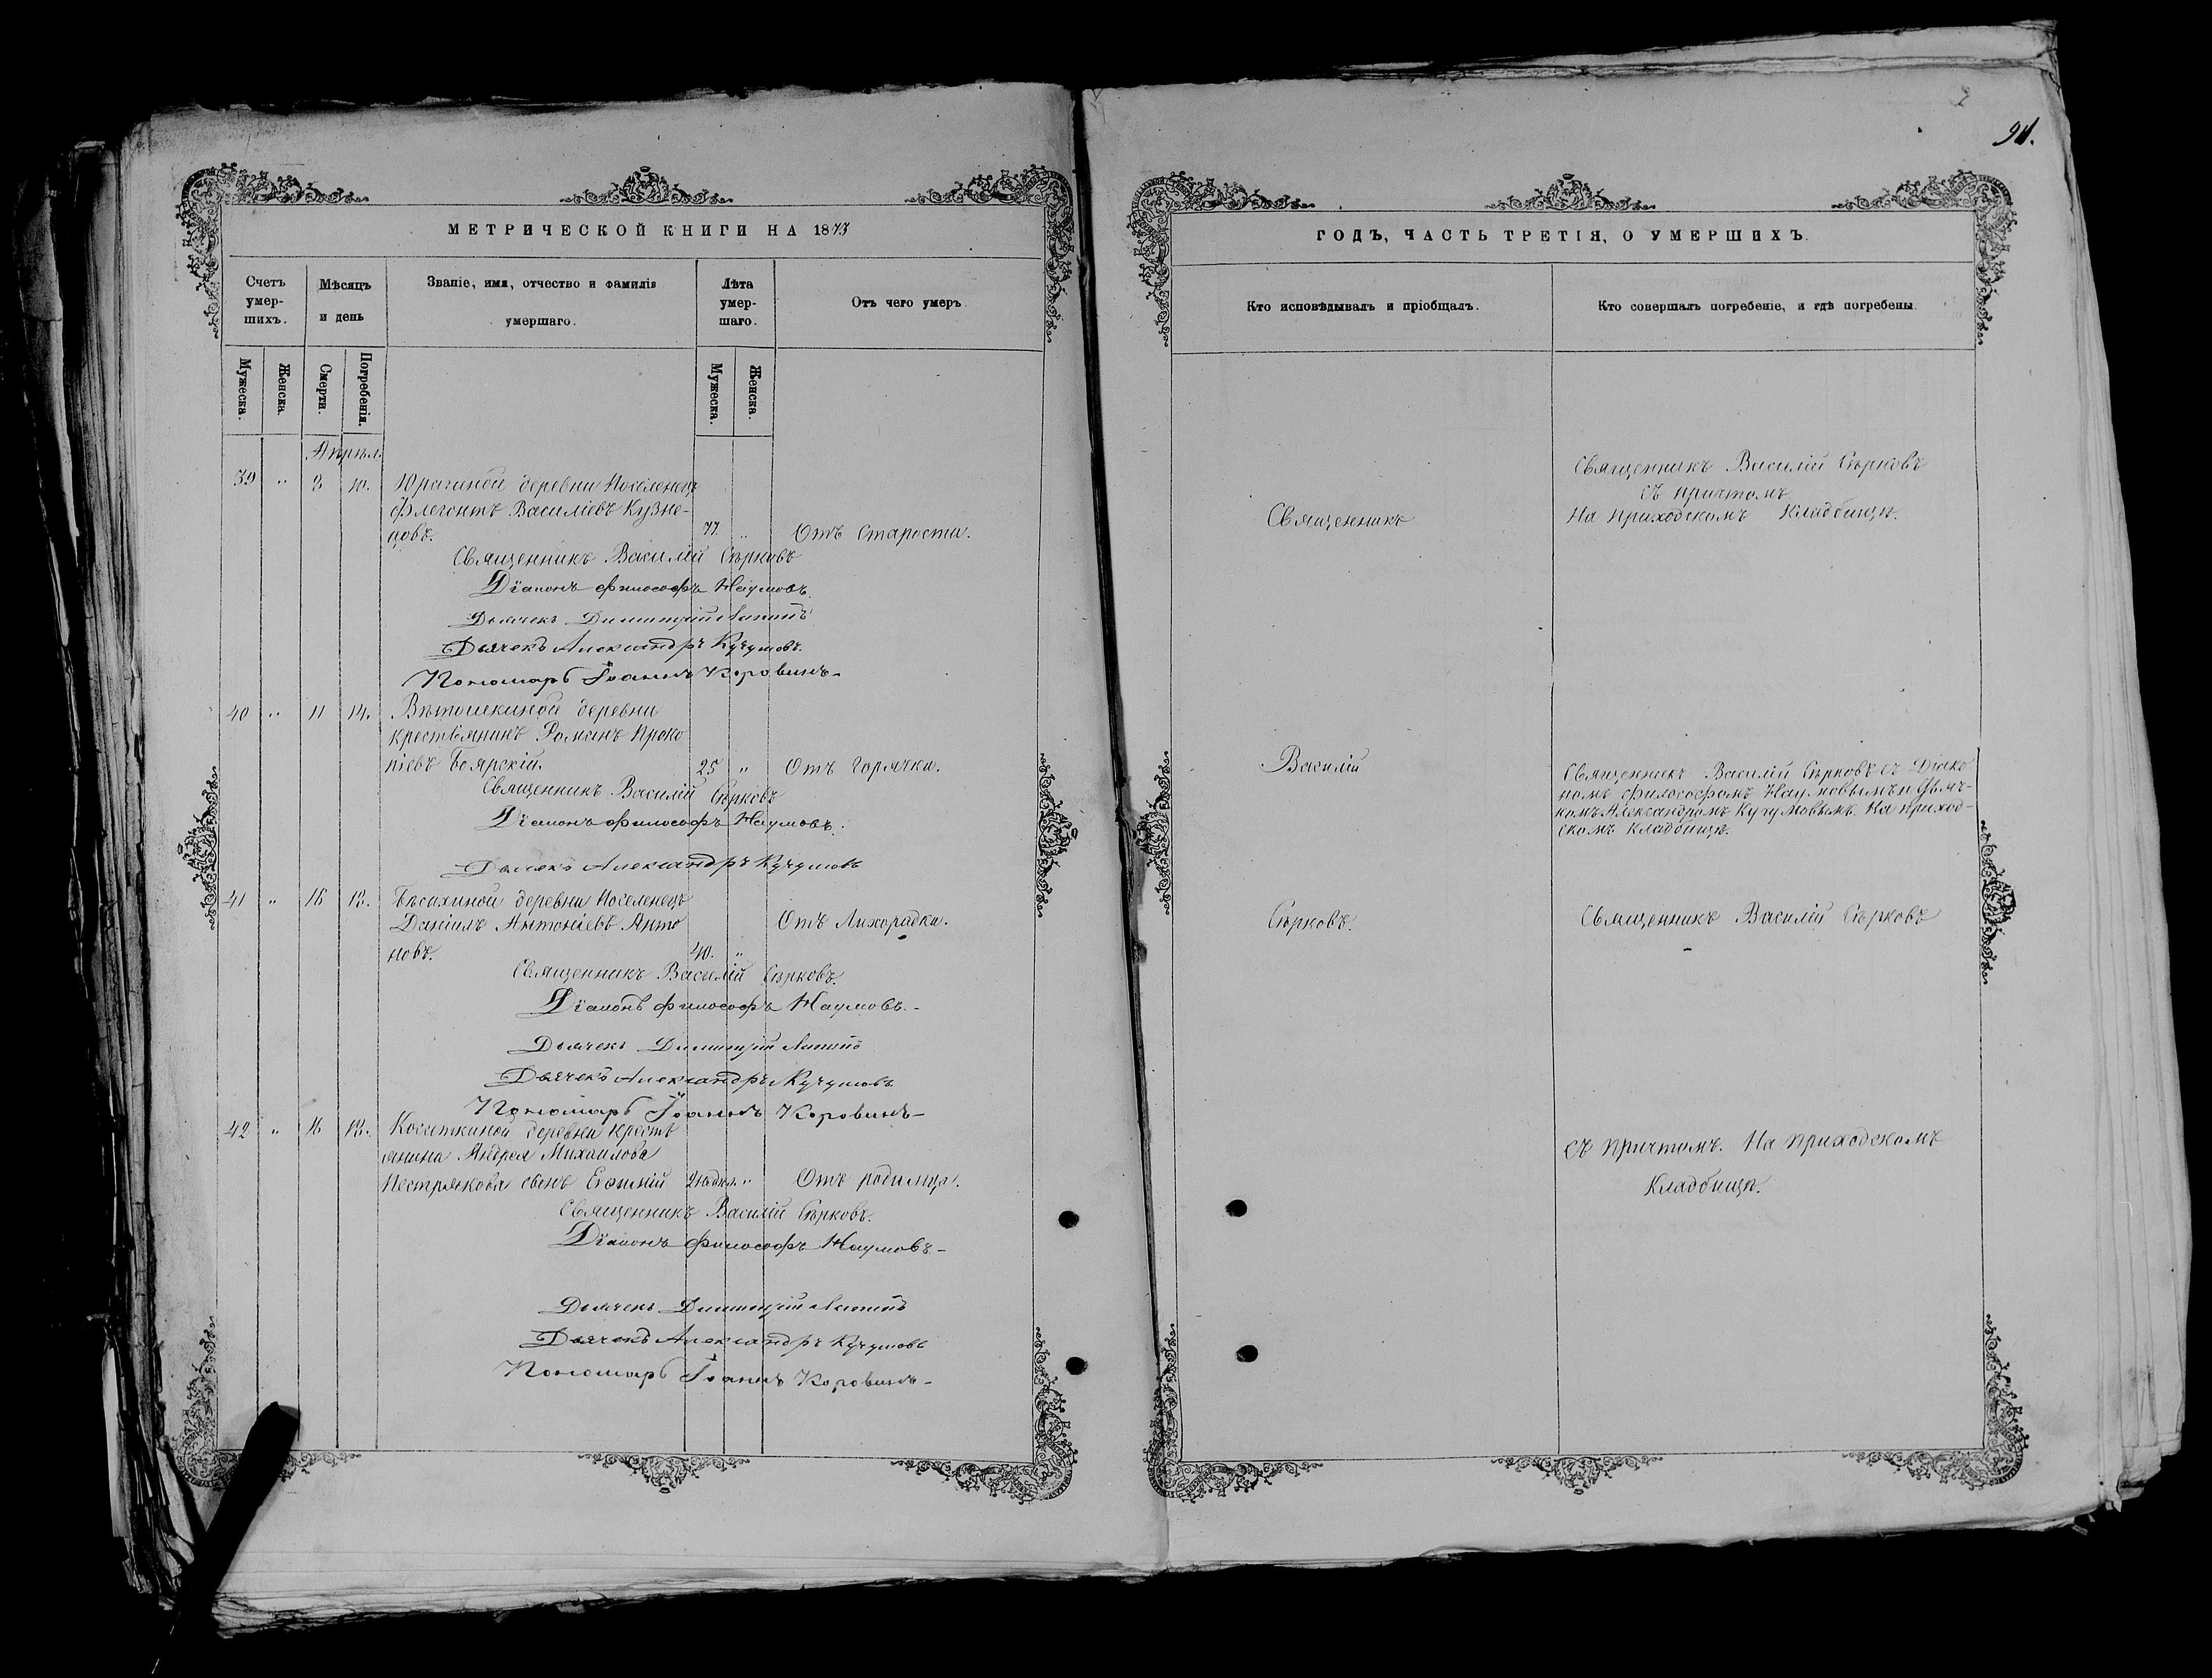 91.
МЕТРИЧЕСКОЙ КНИГИ НА 1873
Счетъ умер-шихъ.
Мѣсяцъ и день
Званіе, имя, отчество и фамилія умершаго.
Лѣта умер-шаго.
Отъ чего умеръ.
Мужеска.
Женска.
Смерти.
Погребенія.
Мужеска.
Женска.
Апрѣл.
39 " 8 10. Юрагиной деревни Поселенецъ
Флегонтъ Василіевъ Кузне-
цовъ. 77. " Отъ Старости.
Священникъ Василій Сѣрковъ
Діаконъ Философъ Наумовъ.
Дьячекъ Димитрій
Дьячекъ Александръ Кучумовъ.
Пономарь Іоаннъ Коровинъ-
40 " 11 14. деревни
крестьянинъ Романъ Проко
піевъ Боярскій. 25 " Отъ Горячки.
Священникъ Василій Сѣрковъ
Діаконъ Философъ Наумовъ.
Дьячекъ Александръ Кучумовъ
41 " 16 18. деревни Поселенецъ
Даніилъ Антоніевъ Анто Отъ Лихорадки.
новъ. 40. "
Священникъ Василій Сѣрковъ.
Діаконъ Философъ Наумовъ.-
Дьячекъ Димитрій
Дьячекъ Александръ Кучумовъ
Пономарь Іоаннъ Коровинъ-
42 " 16 18. деревни кресть
янина Андрея Михаилова
Пестрякова сынъ " Отъ родимца.
Священникъ Василій Сѣрковъ.
Діаконъ Философъ Наумовъ-
Дьячекъ Димитрій
Дьячекъ Александръ Кучумовъ
Пономарь Іоаннъ Коровинъ-
ГОДЪ, ЧАСТЬ ТРЕТІЯ, О УМЕРШИХЪ.
Кто исповѣдывалъ и пріобщалъ.
Кто совершалъ погребеніе, и гдѣ погребены.
Священникъ
Василій
Сѣрковъ.
Священникъ Василій Сѣрковъ
съ причтомъ
На приходскомъ Кладбищѣ.
Священникъ Василій Сѣрковъ съ Діако
номъ Философомъ Наумовымъ и Дьяч-
комъ Александромъ Кучумовымъ. На приход-
скомъ Кладбищѣ.
Священникъ Василій Сѣрковъ
съ причтомъ. На приходскомъ
Кладбищѣ.